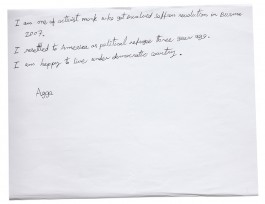 I am one of activist monk who got involved saffron revolution in Burma
2007.
I resettled to America as political refugee three year ago.
I am happy to live under democratic country.
Agga